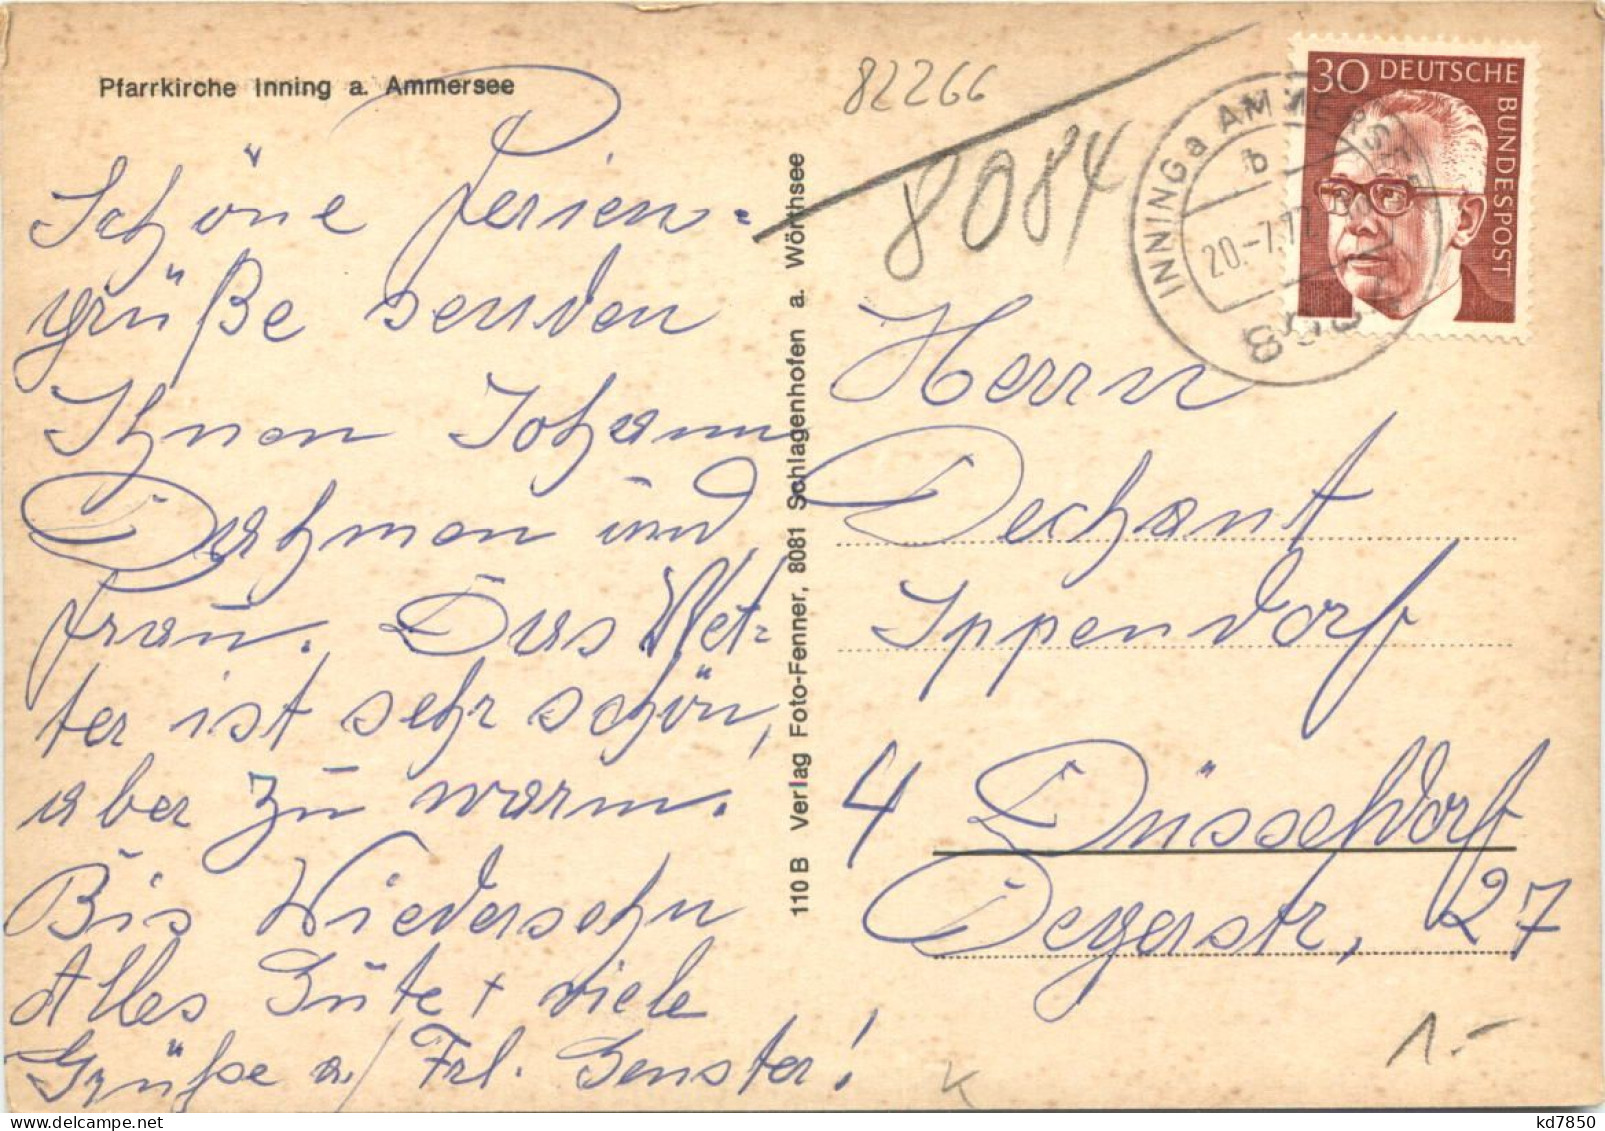 Pfarrkirche Inning a. Ammersee
Schöne Ferien-
grüße senden
Ihnen Johann
Dahmen und
Frau. Das Wet-
ter ist sehr schön,
aber zu warm.
Bis Wiedersehn
Alles Gute + viele
Grüße a/ Frl. Genster!
110 B Verlag Foto-Fenner, 8081 Schlagenhofen a. Wörthsee
82266
8084
INNING a AMMERSEE
b
20.-7.72
30 DEUTSCHE BUNDESPOST
Herrn
Dechant
Ippendorf
4 Düsseldorf
Degerstr, 27
1.-
K
kd7850